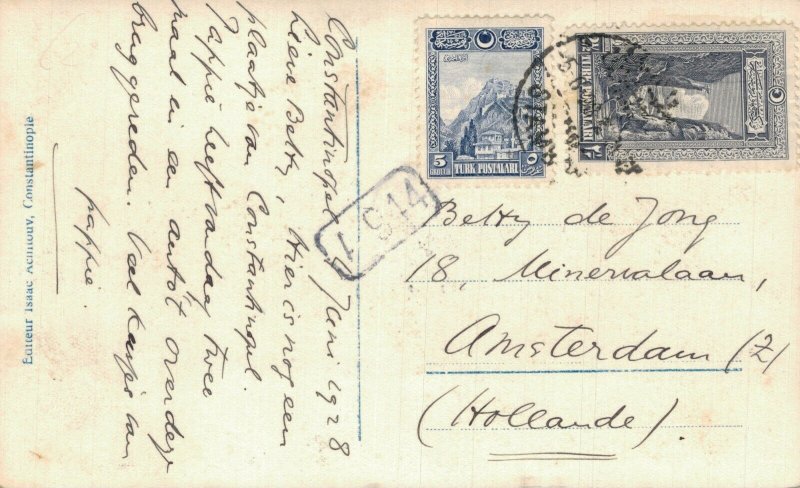 Constantinopel, Juni 1928
Lieve Betty, Hier is nog een
plaatje van Constantinopel.
Pappie heeft vandaag twee
maal in een auto't over deze
brug gereden. Veel kusjes van
pappie.
Editeur Isaac Acnnouv, Constantinople
5
TURK POSTALARI
TURK POSTALARI
1914
Betty de Jong
18, Minervalaan,
Amsterdam (Z)
(Hollande).